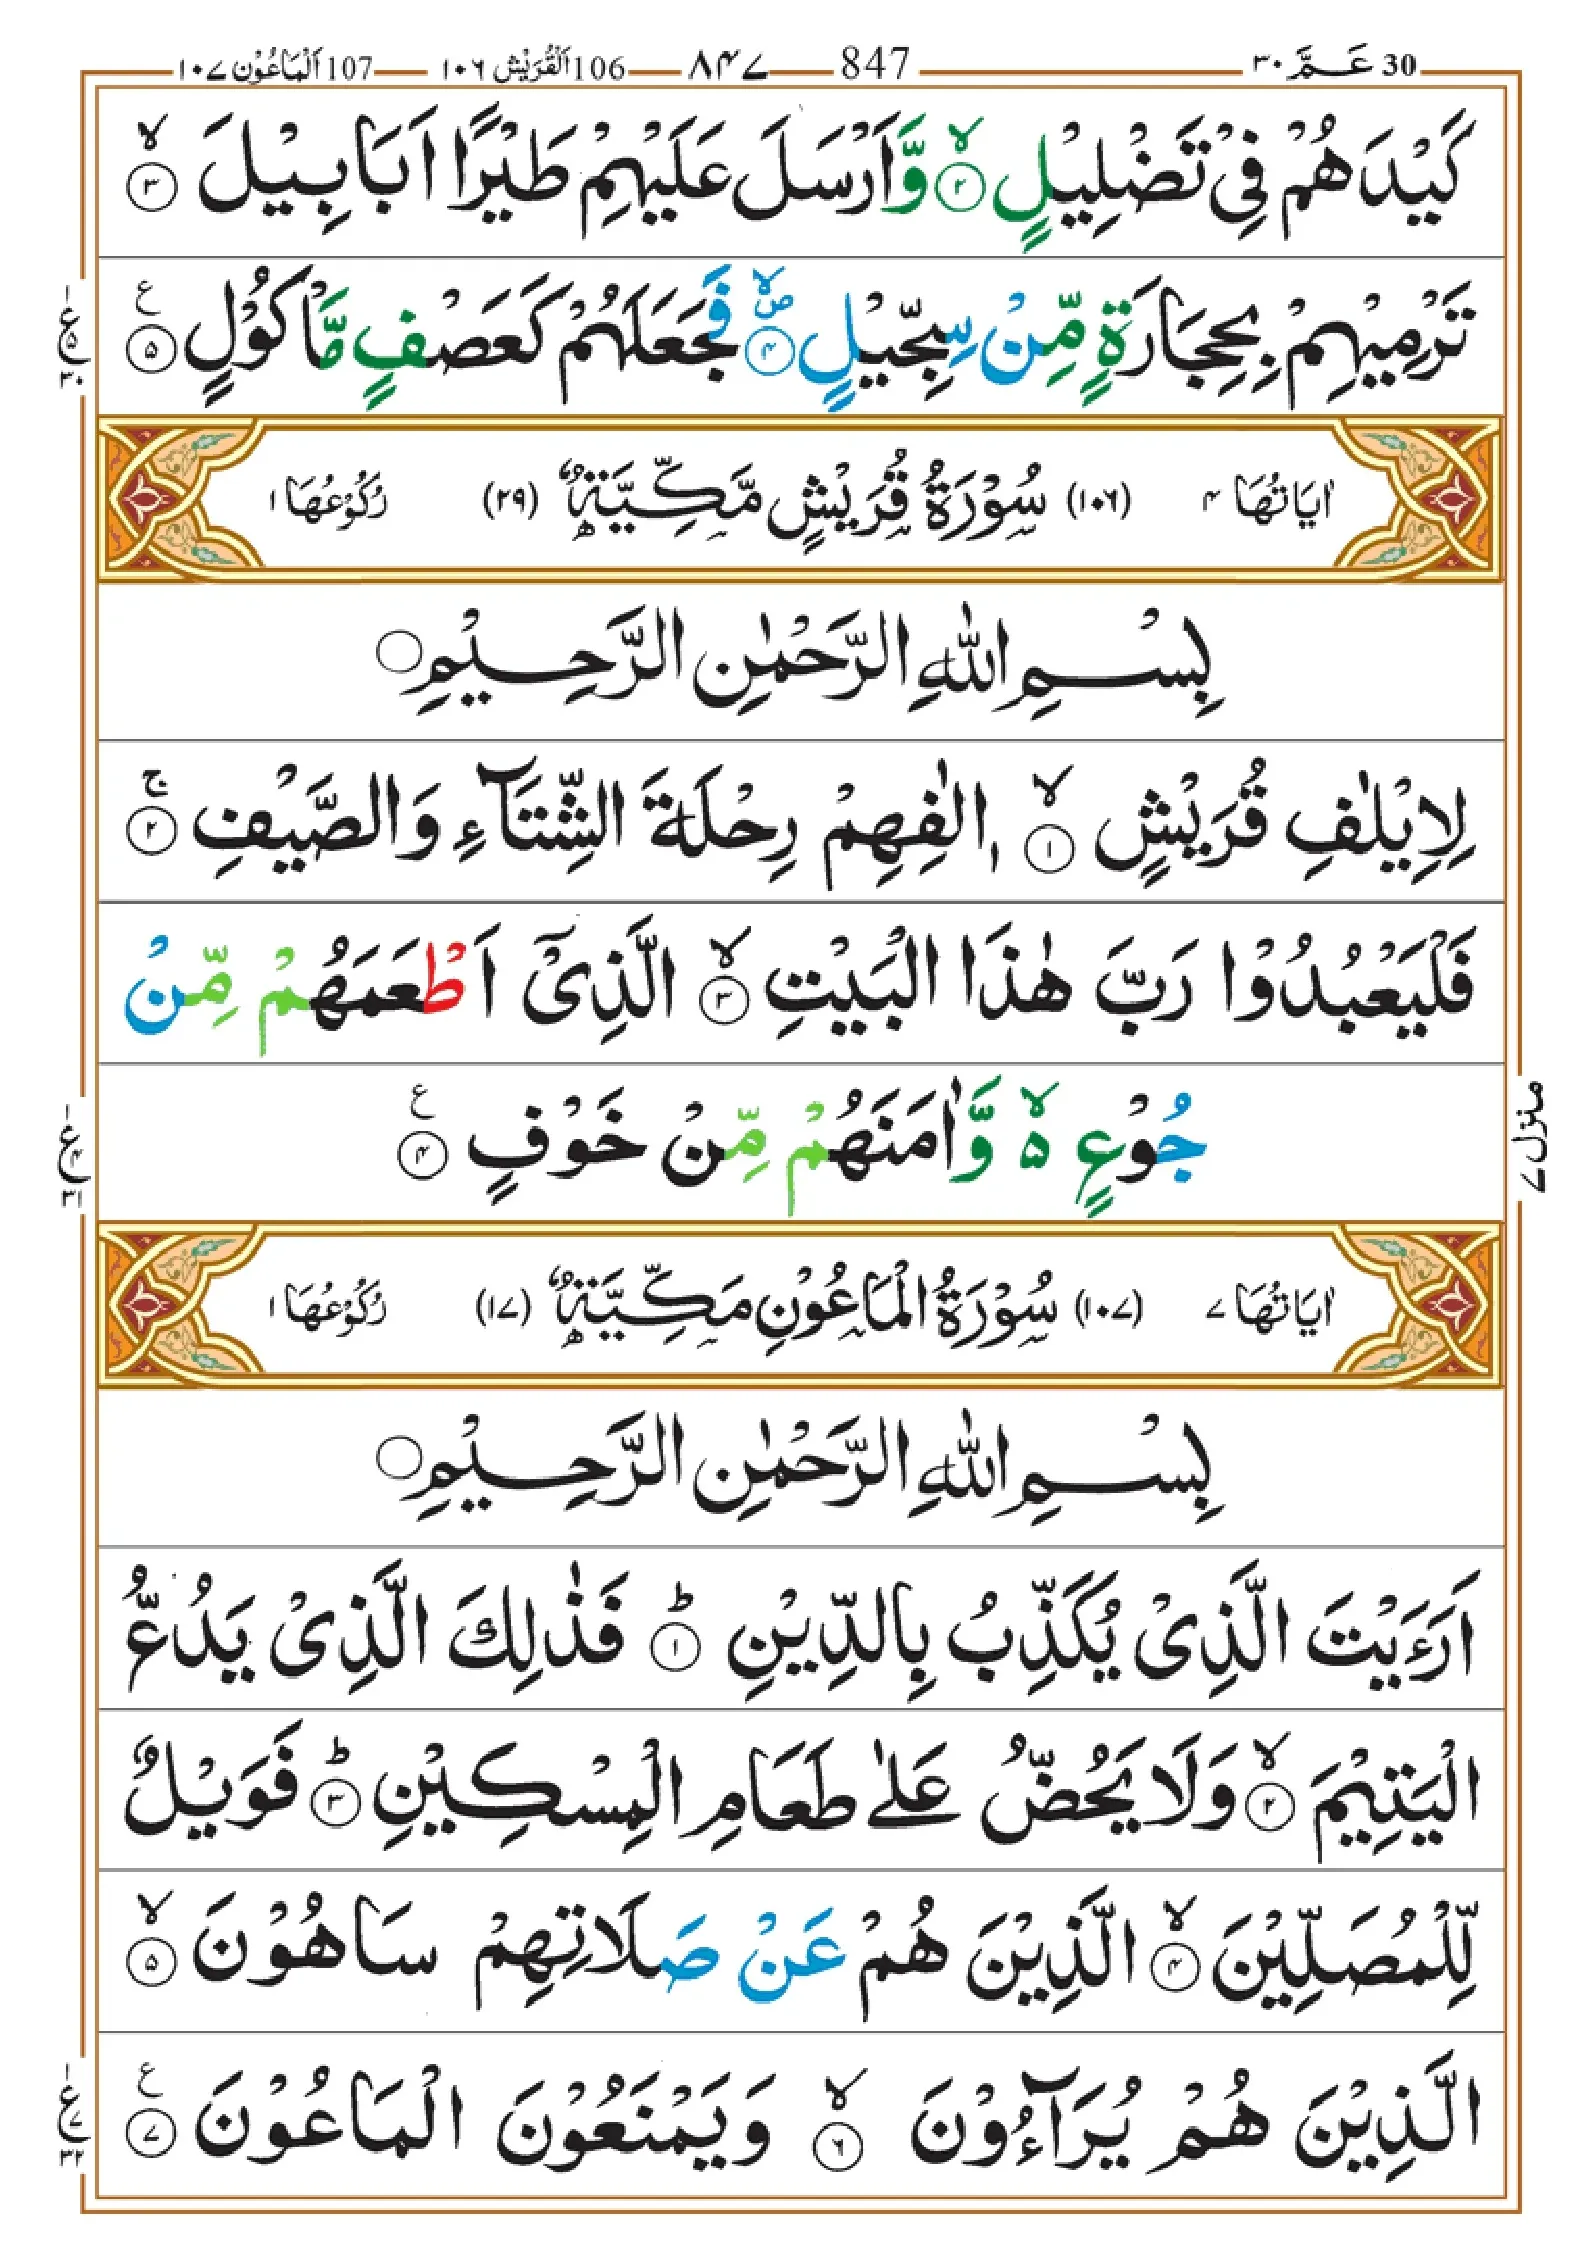 30 عَـمَّ ٣٠ 847 ٨٤٧ 106 اَلْقُرَيْش ١٠٦ 107 اَلْمَاعُوْن ١٠٧
كَيْدَهُمْ فِىْ تَضْلِيْلٍ ۙ﴿٢﴾ وَّاَرْسَلَ عَلَيْهِمْ طَيْرًا اَبَابِيْلَ ۙ﴿٣﴾
تَرْمِيْهِمْ بِحِجَارَةٍ مِّنْ سِجِّيْلٍ ۪ۙۙ﴿٤﴾ فَجَعَلَهُمْ كَعَصْفٍ مَّاْكُوْلٍ ﴿٥﴾ ع
ع ١ ٥ ٣٠
اٰيَاتُهَا ٤ (١٠٦) سُوْرَةُ قُرَيْشٍ مَّكِّيَّةٌ (٢٩) رُكُوْعُهَا ١
بِسْمِ اللّٰهِ الرَّحْمٰنِ الرَّحِيْمِ
لِاِيْلٰفِ قُرَيْشٍ ۙ﴿١﴾ اٖلٰفِهِمْ رِحْلَةَ الشِّتَآءِ وَالصَّيْفِ ۚ﴿٢﴾
فَلْيَعْبُدُوْا رَبَّ هٰذَا الْبَيْتِ ۙ﴿٣﴾ الَّذِىْۤ اَطْعَمَهُمْ مِّنْ
جُوْعٍ ۙ۵ وَّاٰمَنَهُمْ مِّنْ خَوْفٍ ﴿٤﴾ ع
ع ١ ٤ ٣١
منزل ٧
اٰيَاتُهَا ٧ (١٠٧) سُوْرَةُ الْمَاعُوْنِ مَكِّيَّةٌ (١٧) رُكُوْعُهَا ١
بِسْمِ اللّٰهِ الرَّحْمٰنِ الرَّحِيْمِ
اَرَءَيْتَ الَّذِىْ يُكَذِّبُ بِالدِّيْنِ ؕ﴿١﴾ فَذٰلِكَ الَّذِىْ يَدُعُّ
الْيَتِيْمَ ۙ﴿٢﴾ وَلَا يَحُضُّ عَلٰى طَعَامِ الْمِسْكِيْنِ ؕ﴿٣﴾ فَوَيْلٌ
لِّلْمُصَلِّيْنَ ۙ﴿٤﴾ الَّذِيْنَ هُمْ عَنْ صَلَاتِهِمْ سَاهُوْنَ ۙ﴿٥﴾
الَّذِيْنَ هُمْ يُرَآءُوْنَ ۙ﴿٦﴾ وَيَمْنَعُوْنَ الْمَاعُوْنَ ﴿٧﴾ ع
ع ١ ٧ ٣٢